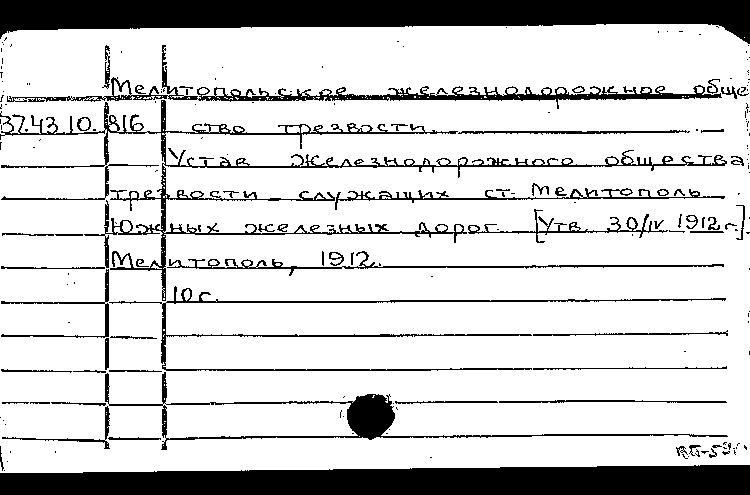 Мелитопольское железнодорожное обще
37.43.10.816 ство трезвости.
Устав Железнодорожного общества
трезвости служащих ст. Мелитополь
Южных железных дорог [Утв. 30/IV 1912 г.]
Мелитополь, 1912.
10 с.